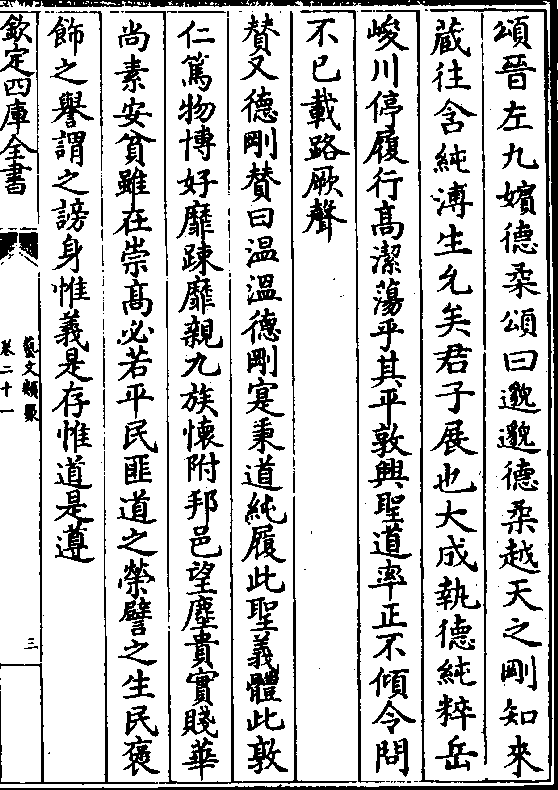 頌晉左九嬪德柔頌曰邈邈德柔越天之剛知來
蔵往含純溥生允矣君子展也大成執德純粹岳
峻川停履行髙潔蕩乎其平敦興聖道率正不傾令問
不已載路厥聲
賛又德剛賛曰温温德剛寔秉道純履此聖義體此敦
仁篤物博好靡踈靡親九族懐附邦邑望塵貴實賤華
尚素安貧雖在崇髙必若平民匪道之榮譬之生民褒
飾之譽謂之謗身惟義是存惟道是遵
欽定四庫全書
藝文類聚
卷二十一
三